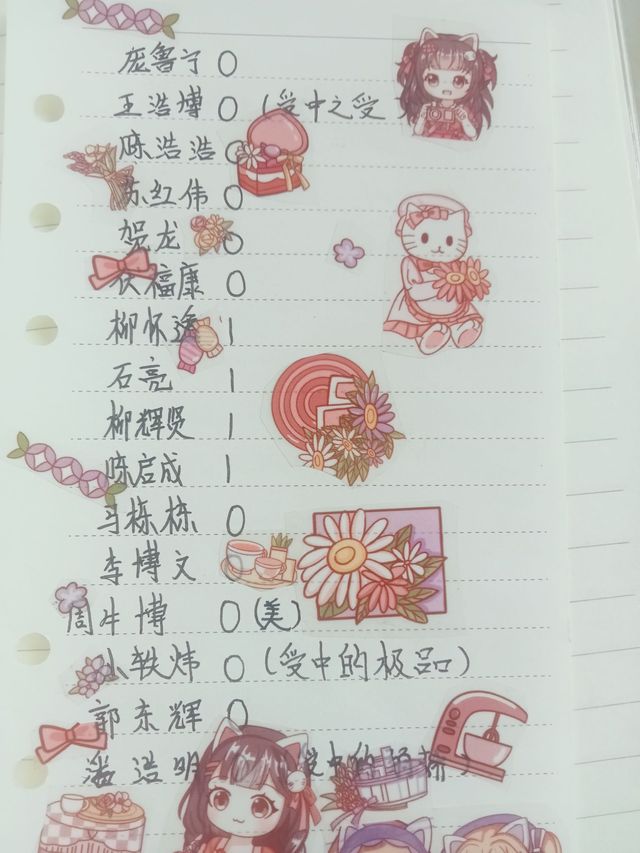 庞鲁宁 0
王浩博 0 (受中之受)
陈浩浩 0
红伟 0
贺龙 0
福康 0
柳怀逸 1
石亮 1
柳辉贤 1
陈启成 1
马栋栋 0
李博文
周牛博 0 (美)
小轶炜 0 (受中的极品)
郭东辉 0
浩明 受中的